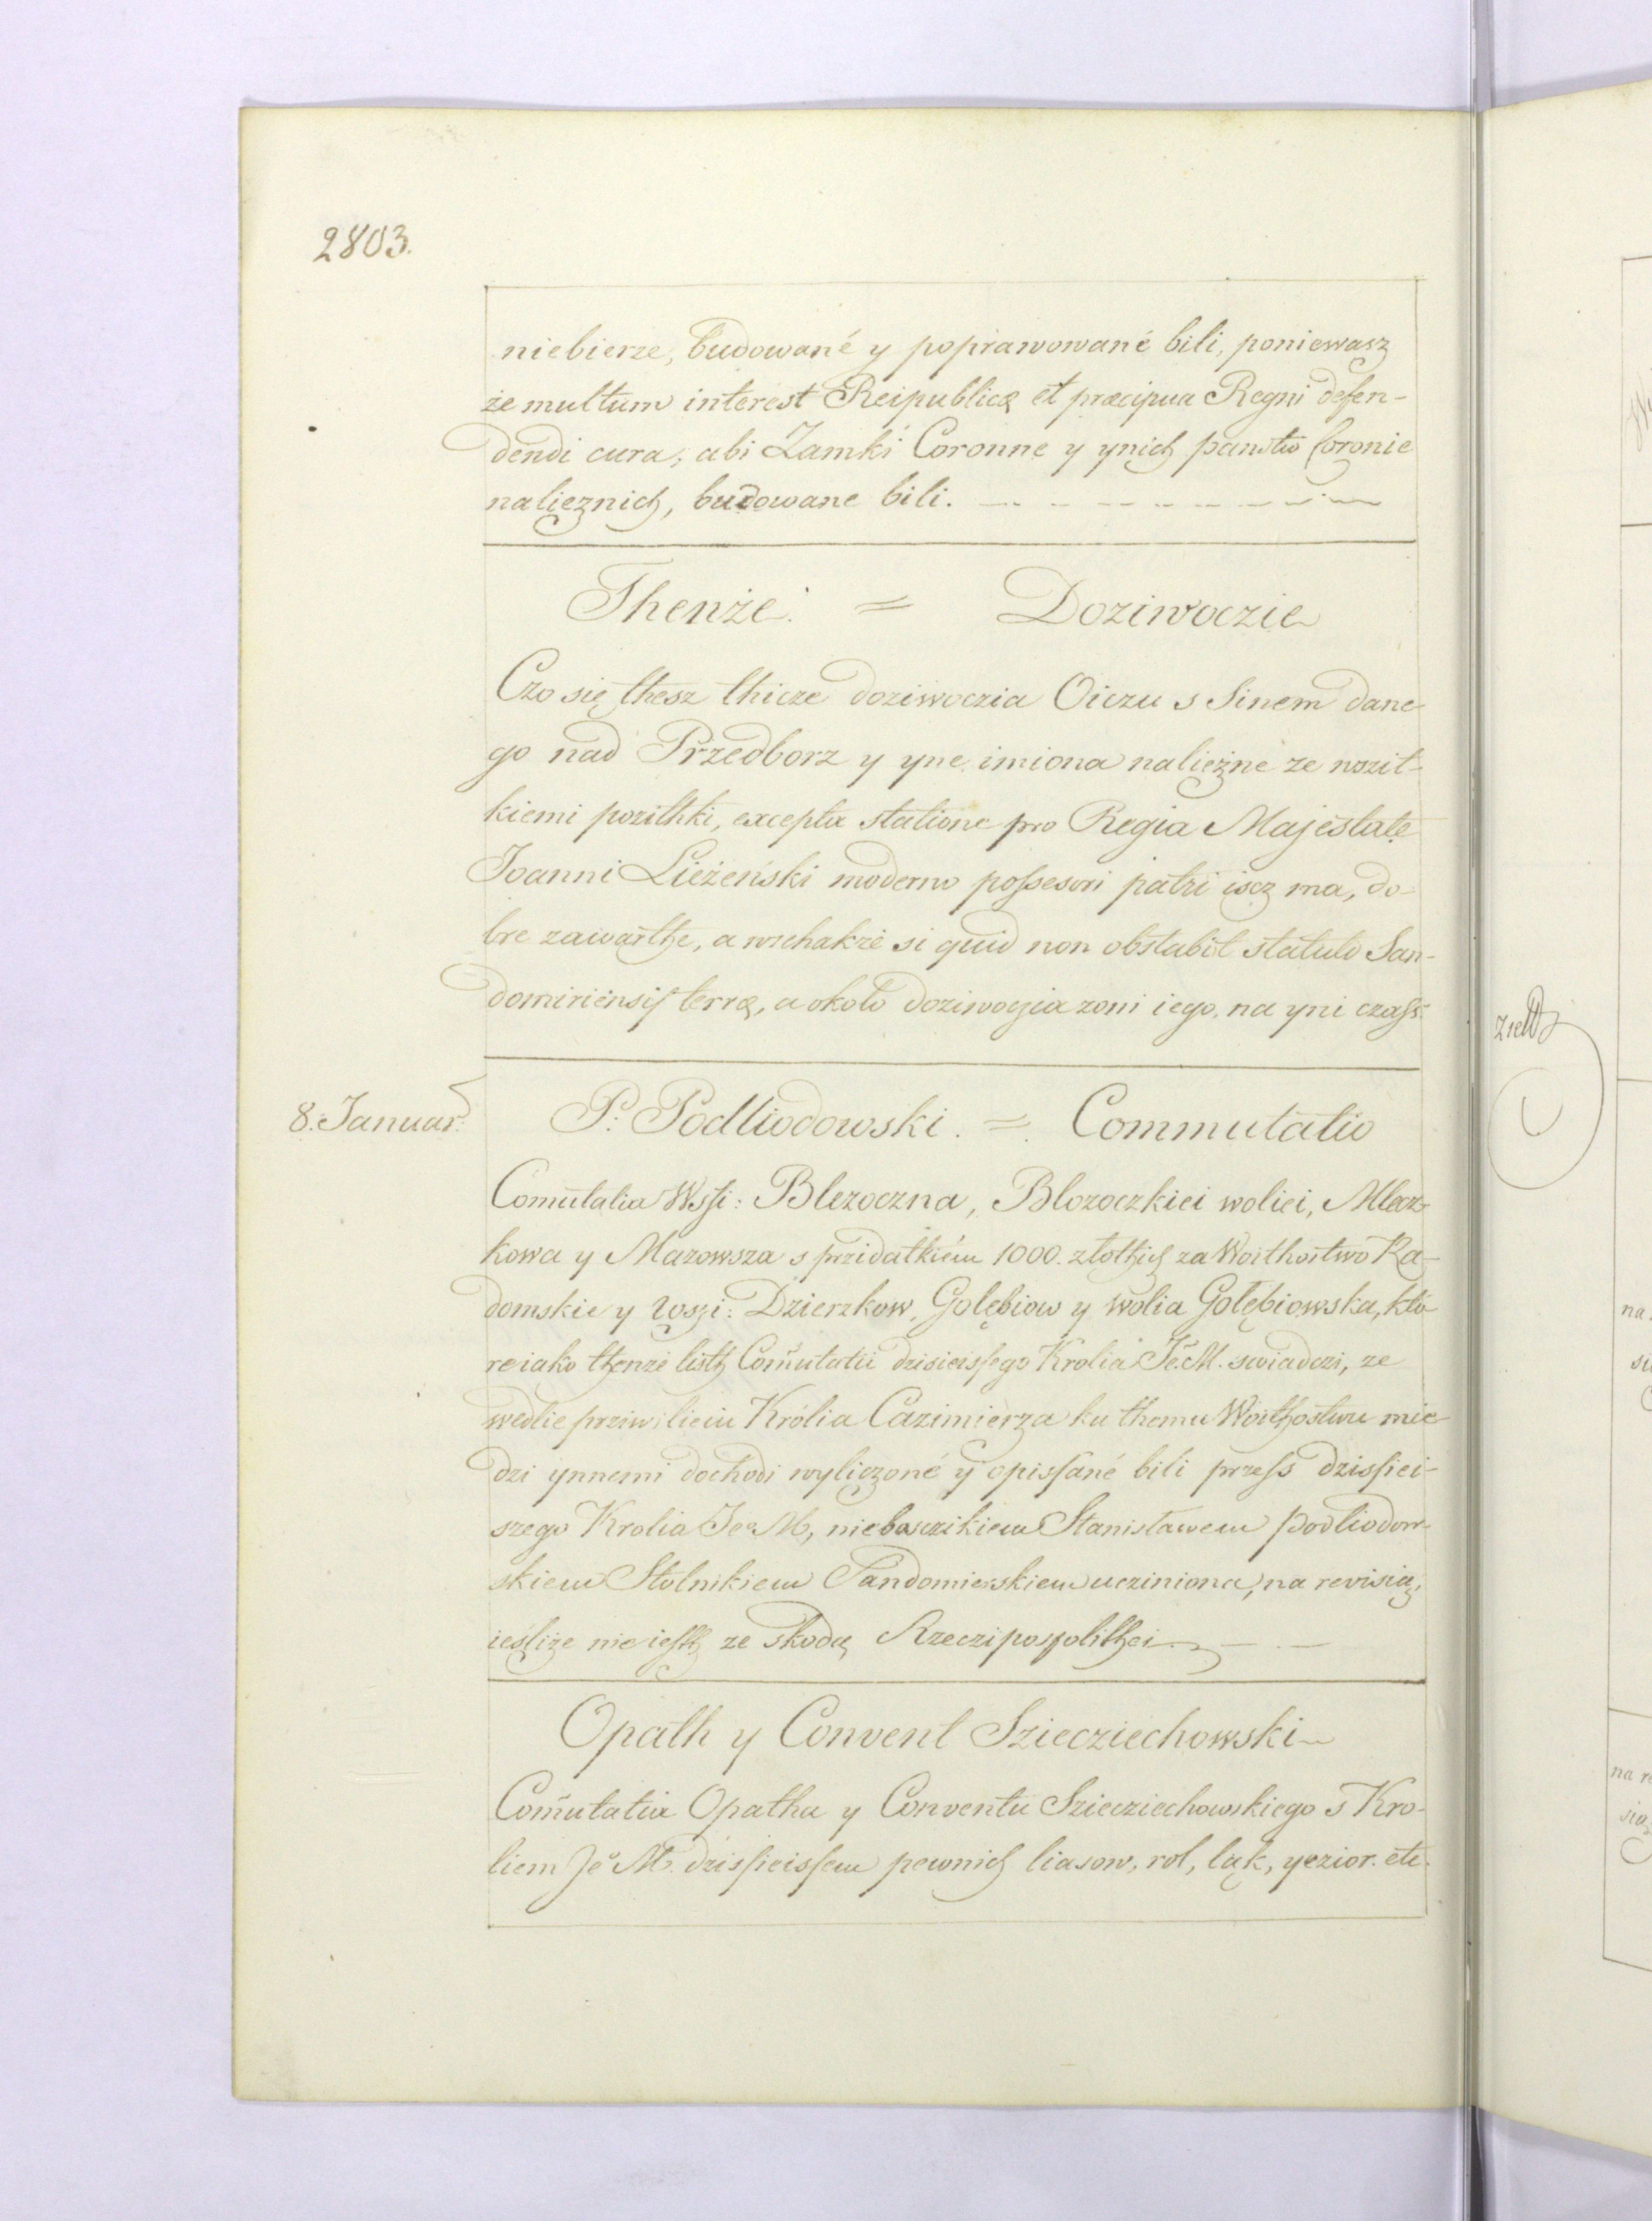 2803.
niebierze, budowané y poprawowané bili, poniewasz
że multum interest Reipublicę et præcipua Regni defen-
dendi cura, abi Zamki Coronne y ynich panstw Coronie
należnich, budowane bili.
Thenże. = Doziwoczie
Czo się thesz thicze doziwoczia Oiczu s Sinem dane-
go nad Przedborz y yne imiona należne ze wszit-
kiemi pozithki, excepta statione pro Regia Majestate
Joanni Lieżeński moderno possesori patri iscz ma, do-
bre zawarthe, a wschakże si quid non obstabit statuto San-
domiriensis terrę, a około doziwoczia zoni iego, na yni czass.
8. Januar.
P. Podliodowski. = Commutatio
Comutatia Wssi: Blezoczna, Blozoczkiei woliei, Mlecz-
kowa y Mazowsza s przidatkiem 1000. złothich za Woithostwo Ra-
domskie y wszi: Dzierzkow, Golębiow y wolia Golębiowska, któ-
re iako thenże listh Comutatii dzisieissego Krolia Je. M. swiadczi, ze
wedlie prziwilieiu Królia Cazimierza ku themu Woithostwu mie-
dzi ynnemi dochodi wyliczoné y opissané bili przess dzissiei-
szego Krolia Je M, nieboszczikiem Stanisławem Podliodow-
skiem Stolnikiem Sandomierskiem ucziniona, na revisią,
ieśliże nie iesth ze skodą Rzeczipospolithei
Opath y Convent Szieciechowski
Comutatia Opatha y Conventu Szieciechowskiego s Kro-
liem Je M. dzissieissem pewnich liasow, rol, ląk, yezior. etc.